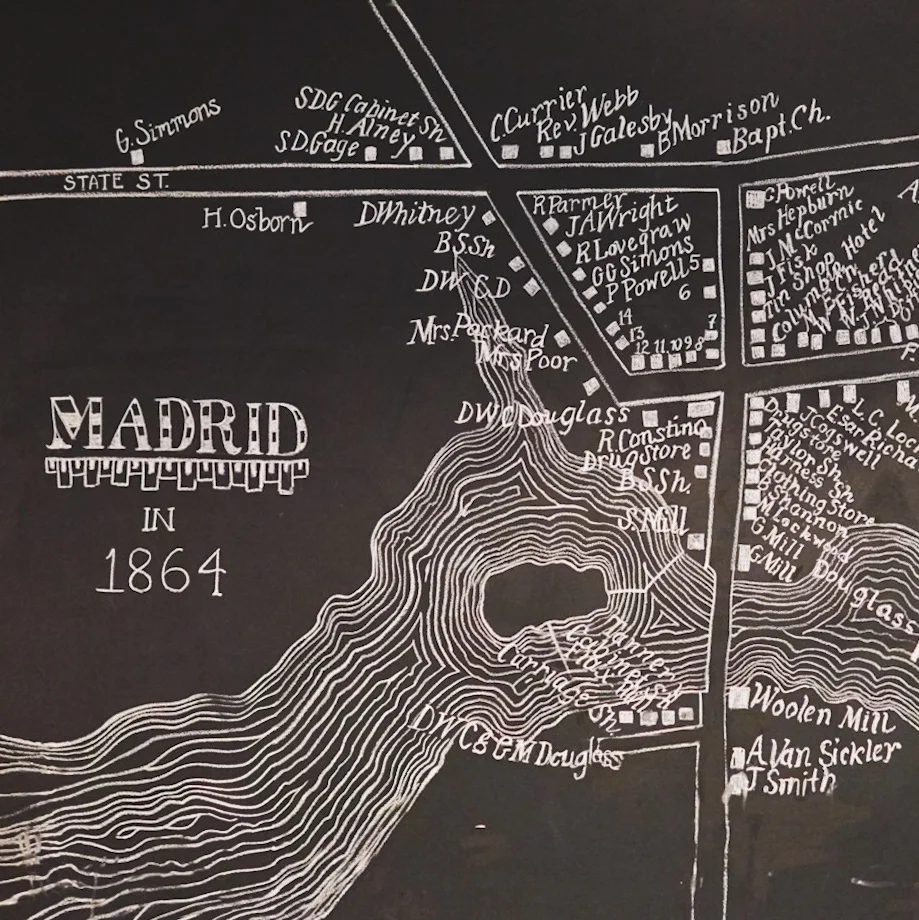 G. Simmons
S.D.G Cabinet Sh
H. Alney
S.D.Gage
C.Currier
Rev. Webb
J Galesby
B Morrison
Bapt. Ch.
STATE ST.
H. Osborn
D Whitney
B.S.Sh
DW C D
Mrs. Packard
Mrs Poor
R Parmer
J A Wright
R Lovegraw
G G Simons
P Powell 5
6
7
14
13
12 11 10 9 8
C Powell
Mrs Hepburn
J. McCormic
J Fisk
Tin Shop
Hotel
DWC Douglass
R Constino
Drug Store
B.S.Sh.
S. Mill
L. C.
Esar Richa
J Cogswell
Drugstore
Taylor Sh
Harness Sh
Clothing Store
B.S.
Shannon
M Lockwood
G. Mill
G Mill
Douglass
MADRID
IN
1864
Tanner
Cabinet Sh
Carryage
DWC & GM Douglass
Woolen Mill
A Van Sickler
J Smith